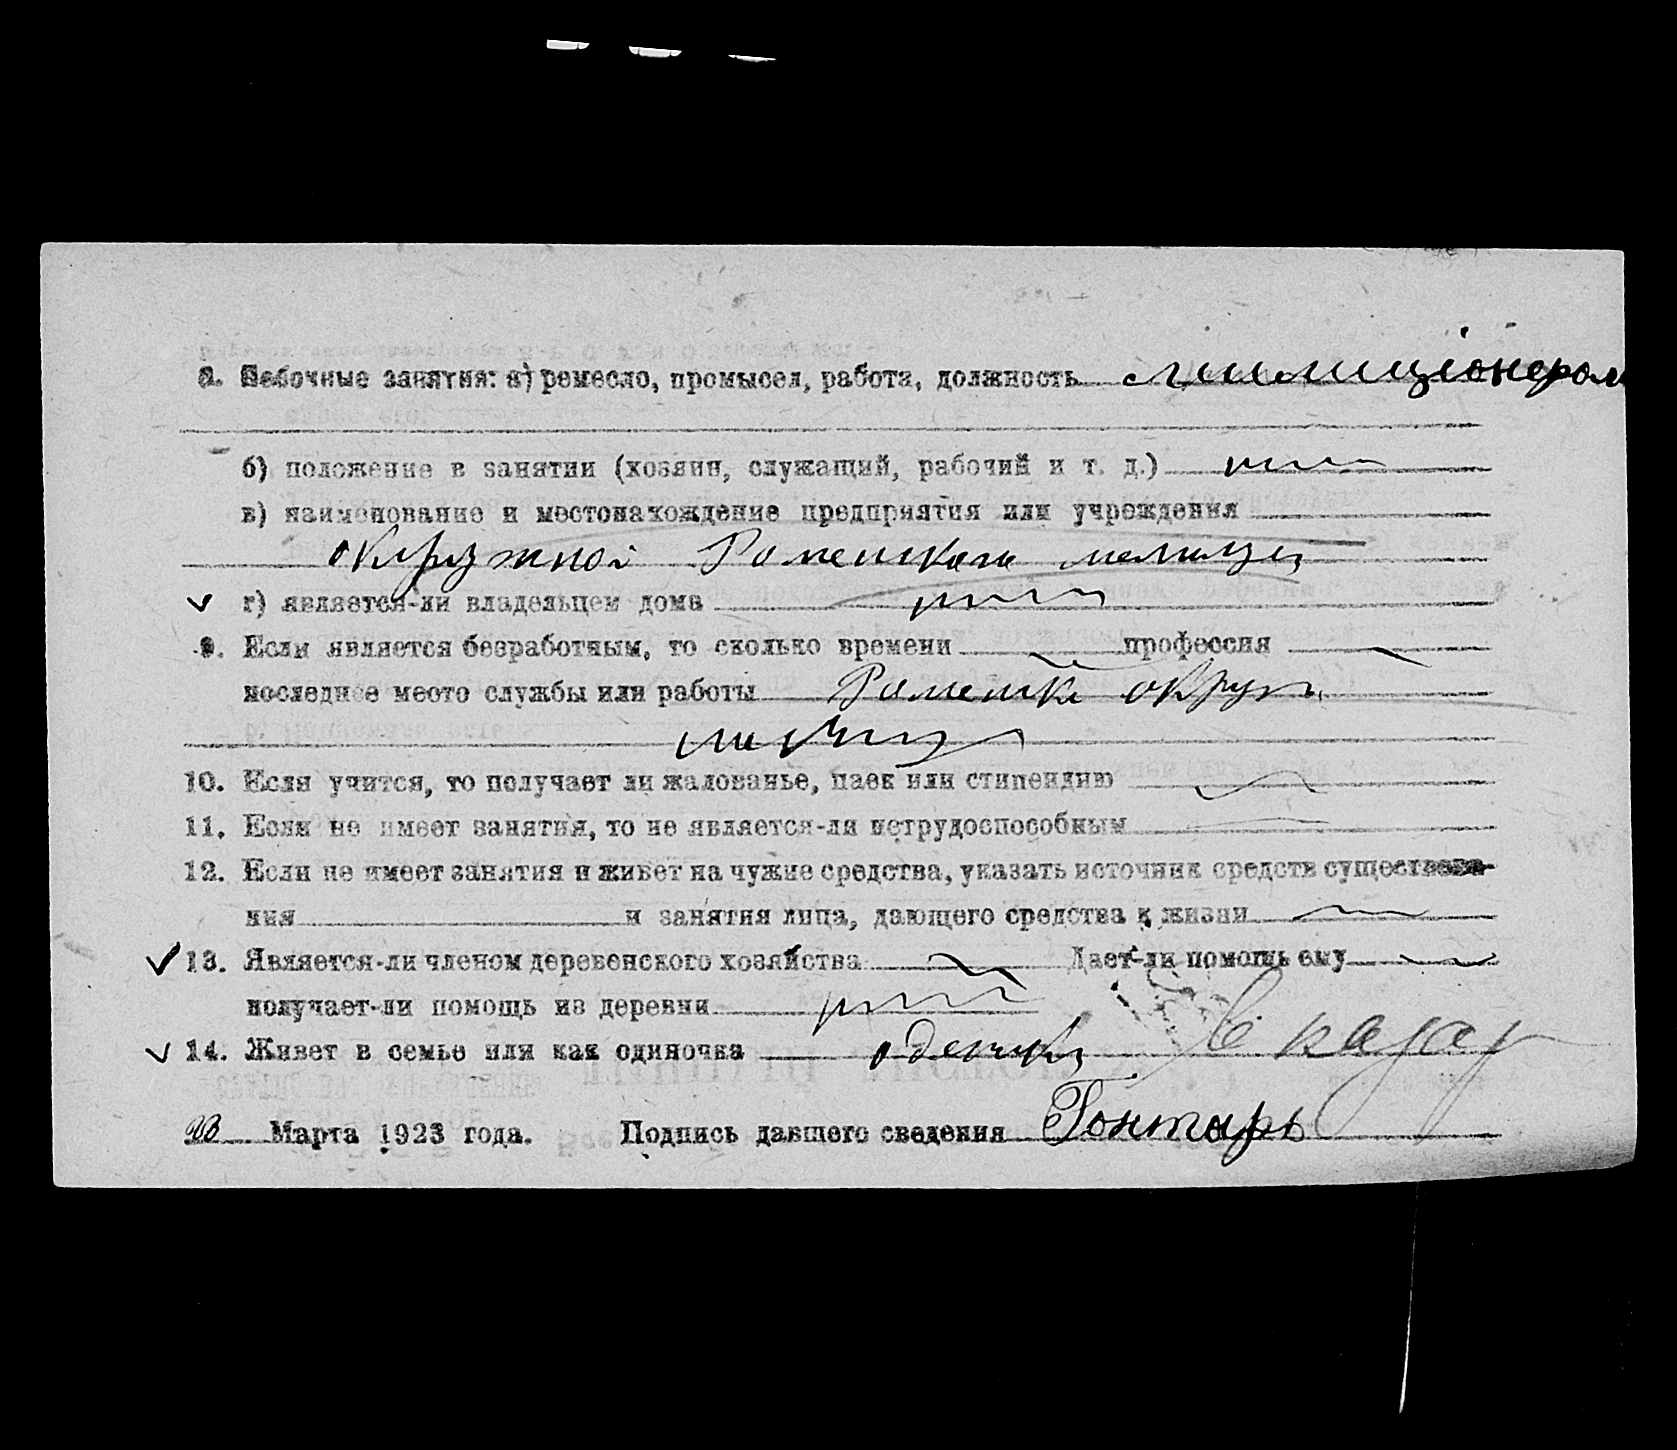 8. Побочные занятия: а) ремесло, промысел, работа, должность милиціонером
б) положение в занятии (хозяин, служащий, рабочий и т. д.)
в) наименование и местонахождение предприятия или учреждения
окружной Роменской
г) является-ли владельцем дома
9. Если является безработным, то сколько времени профессия
последнее место службы или работы
10. Если учится, то получает ли жалованье, паек или стипендию
11. Если не имеет занятия, то не является-ли нетрудоспособным
12. Если не имеет занятия и живет на чужие средства, указать источник средств существова-
ния и занятия лица, дающего средства к жизни
13. Является-ли членом деревенского хозяйства Дает-ли помощь ему
получает-ли помощь из деревни
14. Живет в семье или как одиночка
Марта 1923 года. Подпись давшего сведения Гонтарь